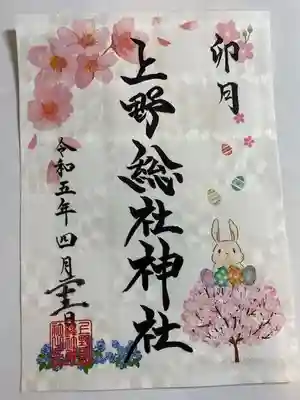 卯月
上野総社神社
令和五年四月吉日